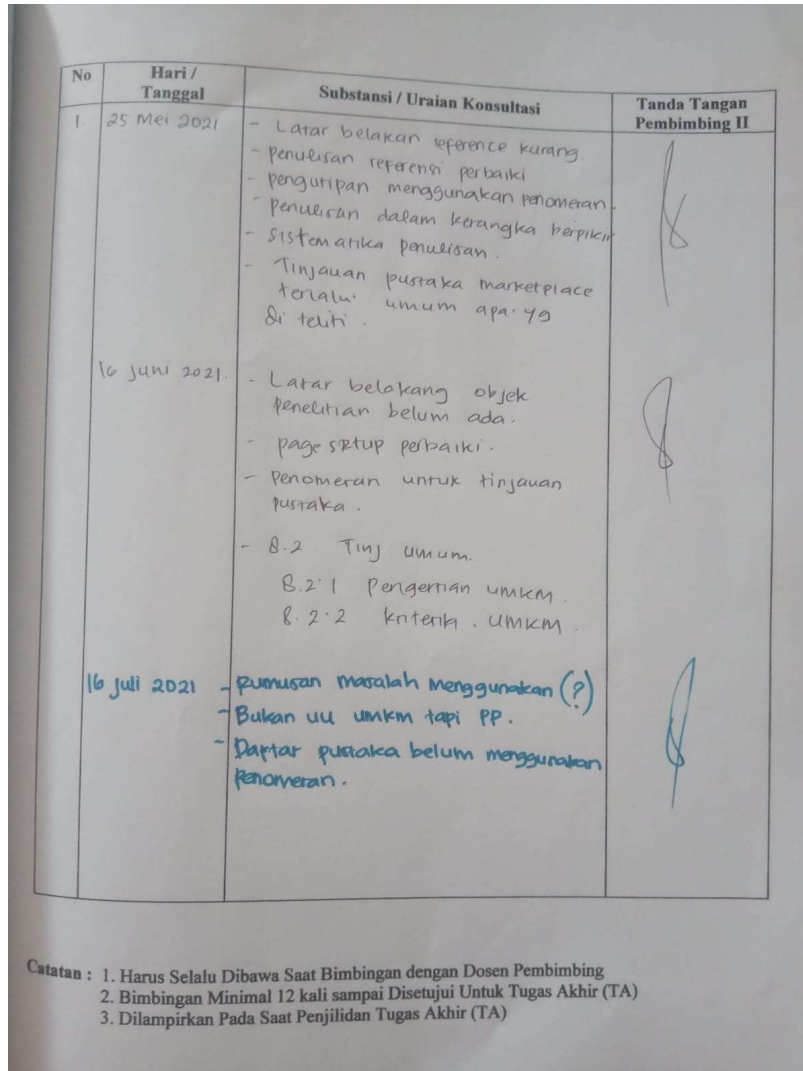 No
Hari /
Tanggal
Substansi / Uraian Konsultasi
Tanda Tangan
Pembimbing II
1.
25 Mei 2021
- Latar belakan reference kurang.
- penulisan referensi perbaiki
- pengutipan menggunakan penomeran.
- penulisan dalam kerangka berpikir
- sistematika penulisan.
- Tinjauan pustaka marketplace
terlalu umum apa yg
di teliti.
16 juni 2021.
- Latar belakang objek
penelitian belum ada.
- page setup perbaiki.
- Penomeran untuk tinjauan
pustaka.
- B.2 Tinj umum.
B.2.1 Pengertian UMKM.
B.2.2 kriteria. UMKM.
16 juli 2021
- Rumusan masalah menggunakan (?)
- Bukan uu umkm tapi PP.
- Daftar pustaka belum menggunakan
Penomeran.
Catatan : 1. Harus Selalu Dibawa Saat Bimbingan dengan Dosen Pembimbing
2. Bimbingan Minimal 12 kali sampai Disetujui Untuk Tugas Akhir (TA)
3. Dilampirkan Pada Saat Penjilidan Tugas Akhir (TA)